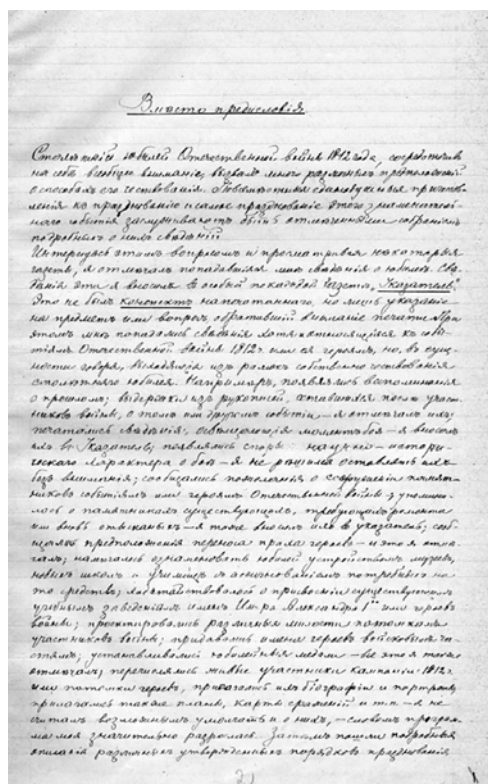 Вмѣсто предисловія.
Столѣтній юбилей Отечественной войны 1812 года, сосредоточивъ
на себѣ всеобщее вниманіе, вызвалъ много различныхъ предположеній
о способахъ его чествованія.
къ празднованію и самое празднованіе этого знаменатель-
наго событія заслуживаютъ быть отмѣченными собраніемъ
подробныхъ о нихъ свѣдѣній
Интересуясь этимъ вопросомъ и просматривая нѣкоторыя
газеты, я отмѣчалъ попадавшія мнѣ свѣдѣнія о юбилеѣ. Свѣ-
дѣнія эти я вносилъ в особый по каждой газетѣ „Указатель“.
Это не былъ конспектъ напечатаннаго, но лишь указаніе
на предметъ или вопросъ, обратившій вниманіе печати. При
этомъ мнѣ попадались свѣдѣнія хотя и относящіяся къ собы-
тіямъ Отечественной войны 1812 г. или ея героямъ, но, въ сущ-
ности говоря, выходящія изъ рамокъ собственно чествованія
столѣтняго юбилея. Напримѣръ, появлялись воспоминанія
о прошломъ; выдержки изъ рукописей, оставшихся послѣ участ-
никовъ войны, о томъ или другомъ событіи – я отмѣчалъ ихъ;
печатались свѣдѣнія, освѣщающія моментъ боя – я вносилъ
ихъ въ Указатель; появлялись споры научно-истори-
ческаго характера о бояхъ – я не рѣшился оставлять ихъ
безъ вниманія; сообщались пожеланія о сооруженіи памят-
никовъ событіямъ или героямъ Отечественной войны – упомина-
лось о памятникахъ существующихъ, требующихъ ремонта
или вновь отысканныхъ – я тоже вносилъ ихъ в указатель; сооб-
щались предположенія переноса праха героевъ – и это я отмѣ-
чалъ; намѣчалось ознаменовать юбилей устройствомъ музеевъ,
новыхъ школъ и училищъ съ ассигнованіемъ потребныхъ на
это средствъ; ходатайствовалось о присвоеніи существующимъ
учебнымъ заведеніямъ имени Импера Александра Iго или героевъ
войны; проектировались различныя милости потомкамъ
участниковъ войны; придавались имена героевъ войсковымъ ча-
стямъ; устанавливались юбилейныя медали – все это я также
отмѣчалъ; перечислялись живые участники кампаніи 1812 г.
или потомки героевъ, прилагались ихъ біографіи и портреты,
прилагались также планы, карты сраженій и т.п. – я не
считалъ возможнымъ умолчать и о нихъ, – словомъ програм-
ма моя значительно разрослась. Затѣмъ пошли подробныя
описанія различныхъ утвержденныхъ порядковъ празднованія